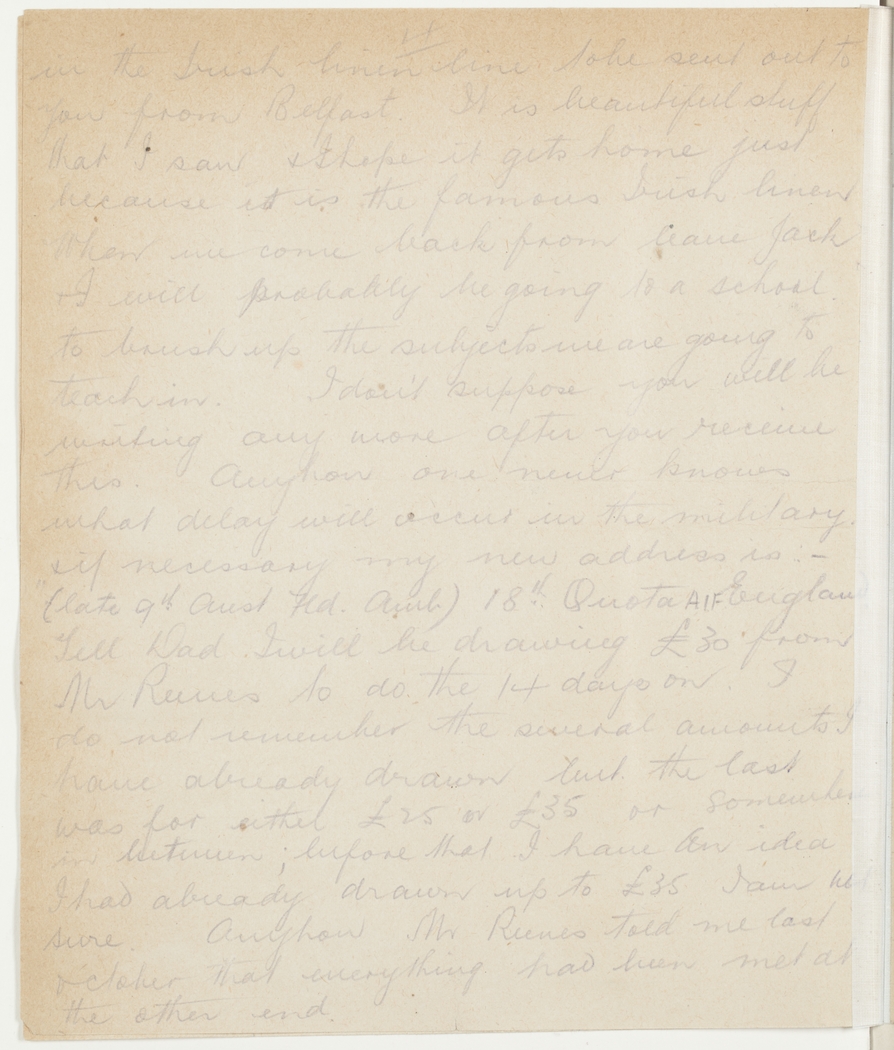 11
in the Irish linen line to be sent out to
you from Belfast. It is beautiful stuff
that I saw & I hope it gets home just
because it is the famous Irish linen
When we come back from leave Jack
& I will probably be going to a school
to brush up the subjects we are going to
teach in. I don't suppose you will be
writing any more after you receive
this. Anyhow one never knows
what delay will occur in the military.
& if necessary my new address is :-
"(late 9th Aust Fld. Amb.) 18th Quota AIF England
Tell Dad I will be drawing £30 from
Mr Reeves to do the 14 days on. I
do not remember the several amounts I
have already drawn but the last
was for either £25 or £35 or somewhere
in between; before that I have an idea
I had already drawn up to £35 I am not
sure. Anyhow Mr Reeves told me last
October that everything had been met at
the other end.